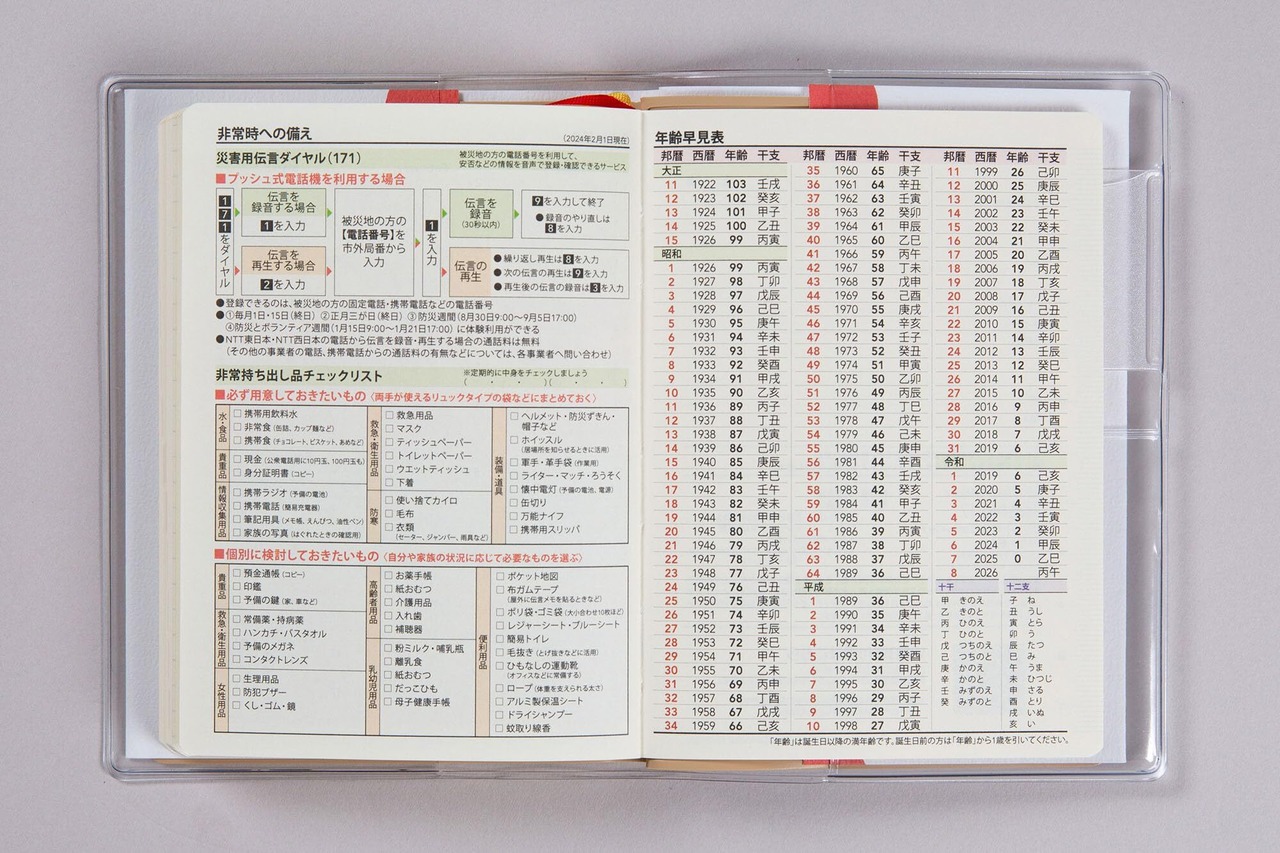 非常時への備え
（2024年2月1日現在）
災害用伝言ダイヤル（171）
被災地の方の電話番号を利用して、
安否などの情報を音声で登録・確認できるサービス
■プッシュ式電話機を利用する場合
171をダイヤル
伝言を
録音する場合
1を入力
伝言を
再生する場合
2を入力
被災地の方の
【電話番号】を
市外局番から
入力
1を入力
伝言を
録音
（30秒以内）
9を入力して終了
●録音のやり直しは
8を入力
伝言の
再生
●繰り返し再生は8を入力
●次の伝言の再生は9を入力
●再生後の伝言の録音は3を入力
●登録できるのは、被災地の方の固定電話・携帯電話などの電話番号
●①毎月1日・15日（終日）②正月三が日（終日）③防災週間（8月30日9:00〜9月5日17:00）
④防災とボランティア週間（1月15日9:00〜1月21日17:00）に体験利用ができる
●NTT東日本・NTT西日本の電話から伝言を録音・再生する場合の通話料は無料
（その他の事業者の電話、携帯電話からの通話料の有無などについては、各事業者へ問い合わせ）
非常持ち出し品チェックリスト
※定期的に中身をチェックしましょう
（　・　・　）（　・　・　）
■必ず用意しておきたいもの〈両手が使えるリュックタイプの袋などにまとめておく〉
水・食品
□携帯用飲料水
□非常食（缶詰、カップ麺など）
□携帯食（チョコレート、ビスケット、あめなど）
貴重品
□現金（公衆電話用に10円玉、100円玉も）
□身分証明書（コピー）
情報収集用品
□携帯ラジオ（予備の電池）
□携帯電話（簡易充電器）
□筆記用具（メモ帳、えんぴつ、油性ペン）
□家族の写真（はぐれたときの確認用）
救急・衛生用品
□救急用品
□マスク
□ティッシュペーパー
□トイレットペーパー
□ウエットティッシュ
□下着
防寒
□使い捨てカイロ
□毛布
□衣類
（セーター、ジャンパー、雨具など）
装備・道具
□ヘルメット・防災ずきん・
帽子など
□ホイッスル
（居場所を知らせるときに活用）
□軍手・革手袋（作業用）
□ライター・マッチ・ろうそく
□懐中電灯（予備の電池、電源）
□缶切り
□万能ナイフ
□携帯用スリッパ
■個別に検討しておきたいもの〈自分や家族の状況に応じて必要なものを選ぶ〉
貴重品
□預金通帳（コピー）
□印鑑
□予備の鍵（家、車など）
救急・衛生用品
□常備薬・持病薬
□ハンカチ・バスタオル
□予備のメガネ
□コンタクトレンズ
女性用品
□生理用品
□防犯ブザー
□くし・ゴム・鏡
高齢者用品
□お薬手帳
□紙おむつ
□介護用品
□入れ歯
□補聴器
乳幼児用品
□粉ミルク・哺乳瓶
□離乳食
□紙おむつ
□だっこひも
□母子健康手帳
便利用品
□ポケット地図
□布ガムテープ
（屋外に伝言メモを貼るときなど）
□ポリ袋・ゴミ袋（大小合わせ10枚ほど）
□レジャーシート・ブルーシート
□簡易トイレ
□毛抜き（とげ抜きなどに活用）
□ひもなしの運動靴
（オフィスなどに常備する）
□ロープ（体重を支えられる太さ）
□アルミ製保温シート
□ドライシャンプー
□蚊取り線香
年齢早見表
邦暦 西暦 年齢 干支
大正
11 1922 103 壬戌
12 1923 102 癸亥
13 1924 101 甲子
14 1925 100 乙丑
15 1926 99 丙寅
昭和
1 1926 99 丙寅
2 1927 98 丁卯
3 1928 97 戊辰
4 1929 96 己巳
5 1930 95 庚午
6 1931 94 辛未
7 1932 93 壬申
8 1933 92 癸酉
9 1934 91 甲戌
10 1935 90 乙亥
11 1936 89 丙子
12 1937 88 丁丑
13 1938 87 戊寅
14 1939 86 己卯
15 1940 85 庚辰
16 1941 84 辛巳
17 1942 83 壬午
18 1943 82 癸未
19 1944 81 甲申
20 1945 80 乙酉
21 1946 79 丙戌
22 1947 78 丁亥
23 1948 77 戊子
24 1949 76 己丑
25 1950 75 庚寅
26 1951 74 辛卯
27 1952 73 壬辰
28 1953 72 癸巳
29 1954 71 甲午
30 1955 70 乙未
31 1956 69 丙申
32 1957 68 丁酉
33 1958 67 戊戌
34 1959 66 己亥
邦暦 西暦 年齢 干支
35 1960 65 庚子
36 1961 64 辛丑
37 1962 63 壬寅
38 1963 62 癸卯
39 1964 61 甲辰
40 1965 60 乙巳
41 1966 59 丙午
42 1967 58 丁未
43 1968 57 戊申
44 1969 56 己酉
45 1970 55 庚戌
46 1971 54 辛亥
47 1972 53 壬子
48 1973 52 癸丑
49 1974 51 甲寅
50 1975 50 乙卯
51 1976 49 丙辰
52 1977 48 丁巳
53 1978 47 戊午
54 1979 46 己未
55 1980 45 庚申
56 1981 44 辛酉
57 1982 43 壬戌
58 1983 42 癸亥
59 1984 41 甲子
60 1985 40 乙丑
61 1986 39 丙寅
62 1987 38 丁卯
63 1988 37 戊辰
64 1989 36 己巳
平成
1 1989 36 己巳
2 1990 35 庚午
3 1991 34 辛未
4 1992 33 壬申
5 1993 32 癸酉
6 1994 31 甲戌
7 1995 30 乙亥
8 1996 29 丙子
9 1997 28 丁丑
10 1998 27 戊寅
邦暦 西暦 年齢 干支
11 1999 26 己卯
12 2000 25 庚辰
13 2001 24 辛巳
14 2002 23 壬午
15 2003 22 癸未
16 2004 21 甲申
17 2005 20 乙酉
18 2006 19 丙戌
19 2007 18 丁亥
20 2008 17 戊子
21 2009 16 己丑
22 2010 15 庚寅
23 2011 14 辛卯
24 2012 13 壬辰
25 2013 12 癸巳
26 2014 11 甲午
27 2015 10 乙未
28 2016 9 丙申
29 2017 8 丁酉
30 2018 7 戊戌
31 2019 6 己亥
令和
1 2019 6 己亥
2 2020 5 庚子
3 2021 4 辛丑
4 2022 3 壬寅
5 2023 2 癸卯
6 2024 1 甲辰
7 2025 0 乙巳
8 2026 丙午
十干
甲 きのえ
乙 きのと
丙 ひのえ
丁 ひのと
戊 つちのえ
己 つちのと
庚 かのえ
辛 かのと
壬 みずのえ
癸 みずのと
十二支
子 ね
丑 うし
寅 とら
卯 う
辰 たつ
巳 み
午 うま
未 ひつじ
申 さる
酉 とり
戌 いぬ
亥 い
「年齢」は誕生日以降の満年齢です。誕生日前の方は「年齢」から1歳を引いてください。